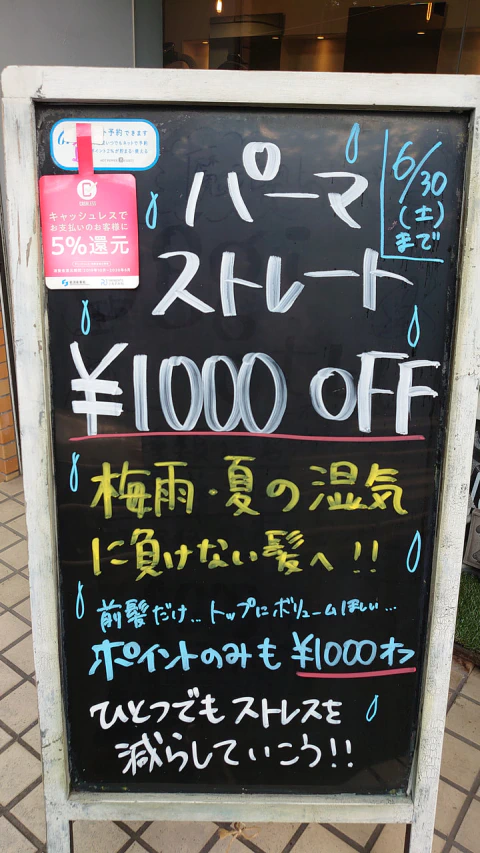 予約できます
6/30
(土)
まで
キャッシュレスで
お支払いのお客様に
5%還元
パーマ
ストレート
¥1000 OFF
梅雨・夏の湿気
に負けない髪へ!!
前髪だけ... トップにボリュームほしい...
ポイントのみも ¥1000オフ
ひとつでもストレスを
減らしていこう!!